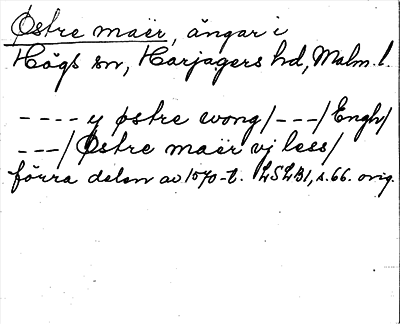 Østre maër, ängar i
Högs sn, Harjagers hd, Malm. l.
---- y østre wong/---/Engh/
---/Østre maër vj less/
förra delen av 1570-t. LSLB1, s. 66. orig.